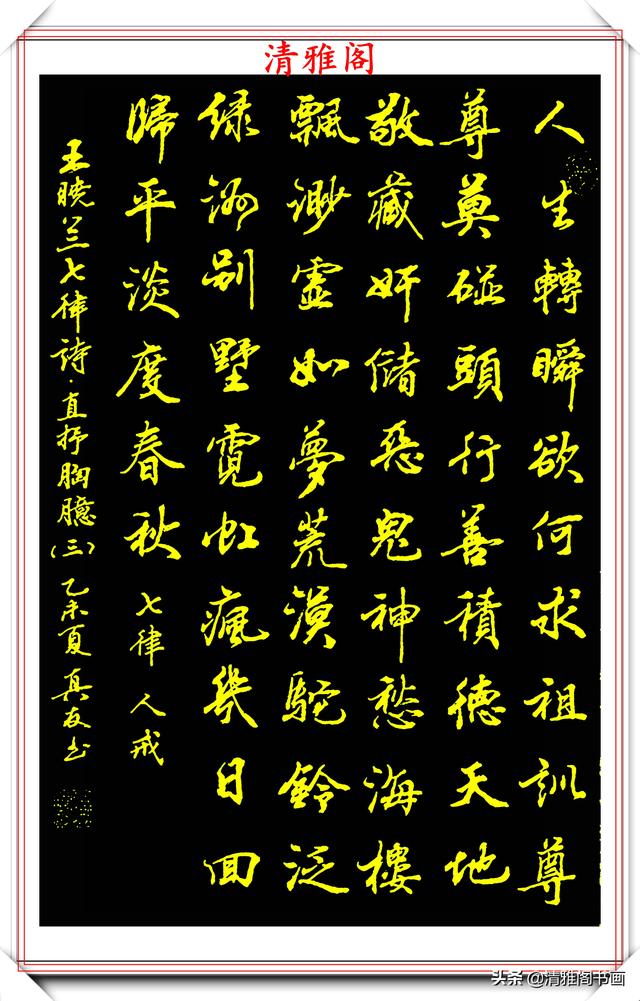 清雅阁
人生轉瞬欲何求祖訓尊
尊莫碰頭行善積德天地
敬藏奸儲惡鬼神愁海樓
飄渺虛如夢荒漠駝鈴泛
绿洲别墅霓虹瘋幾日回
歸平淡度春秋 七律 人戒
王曉兰七律詩·直抒胸臆(三)乙未夏真友书
头条@清雅阁书画